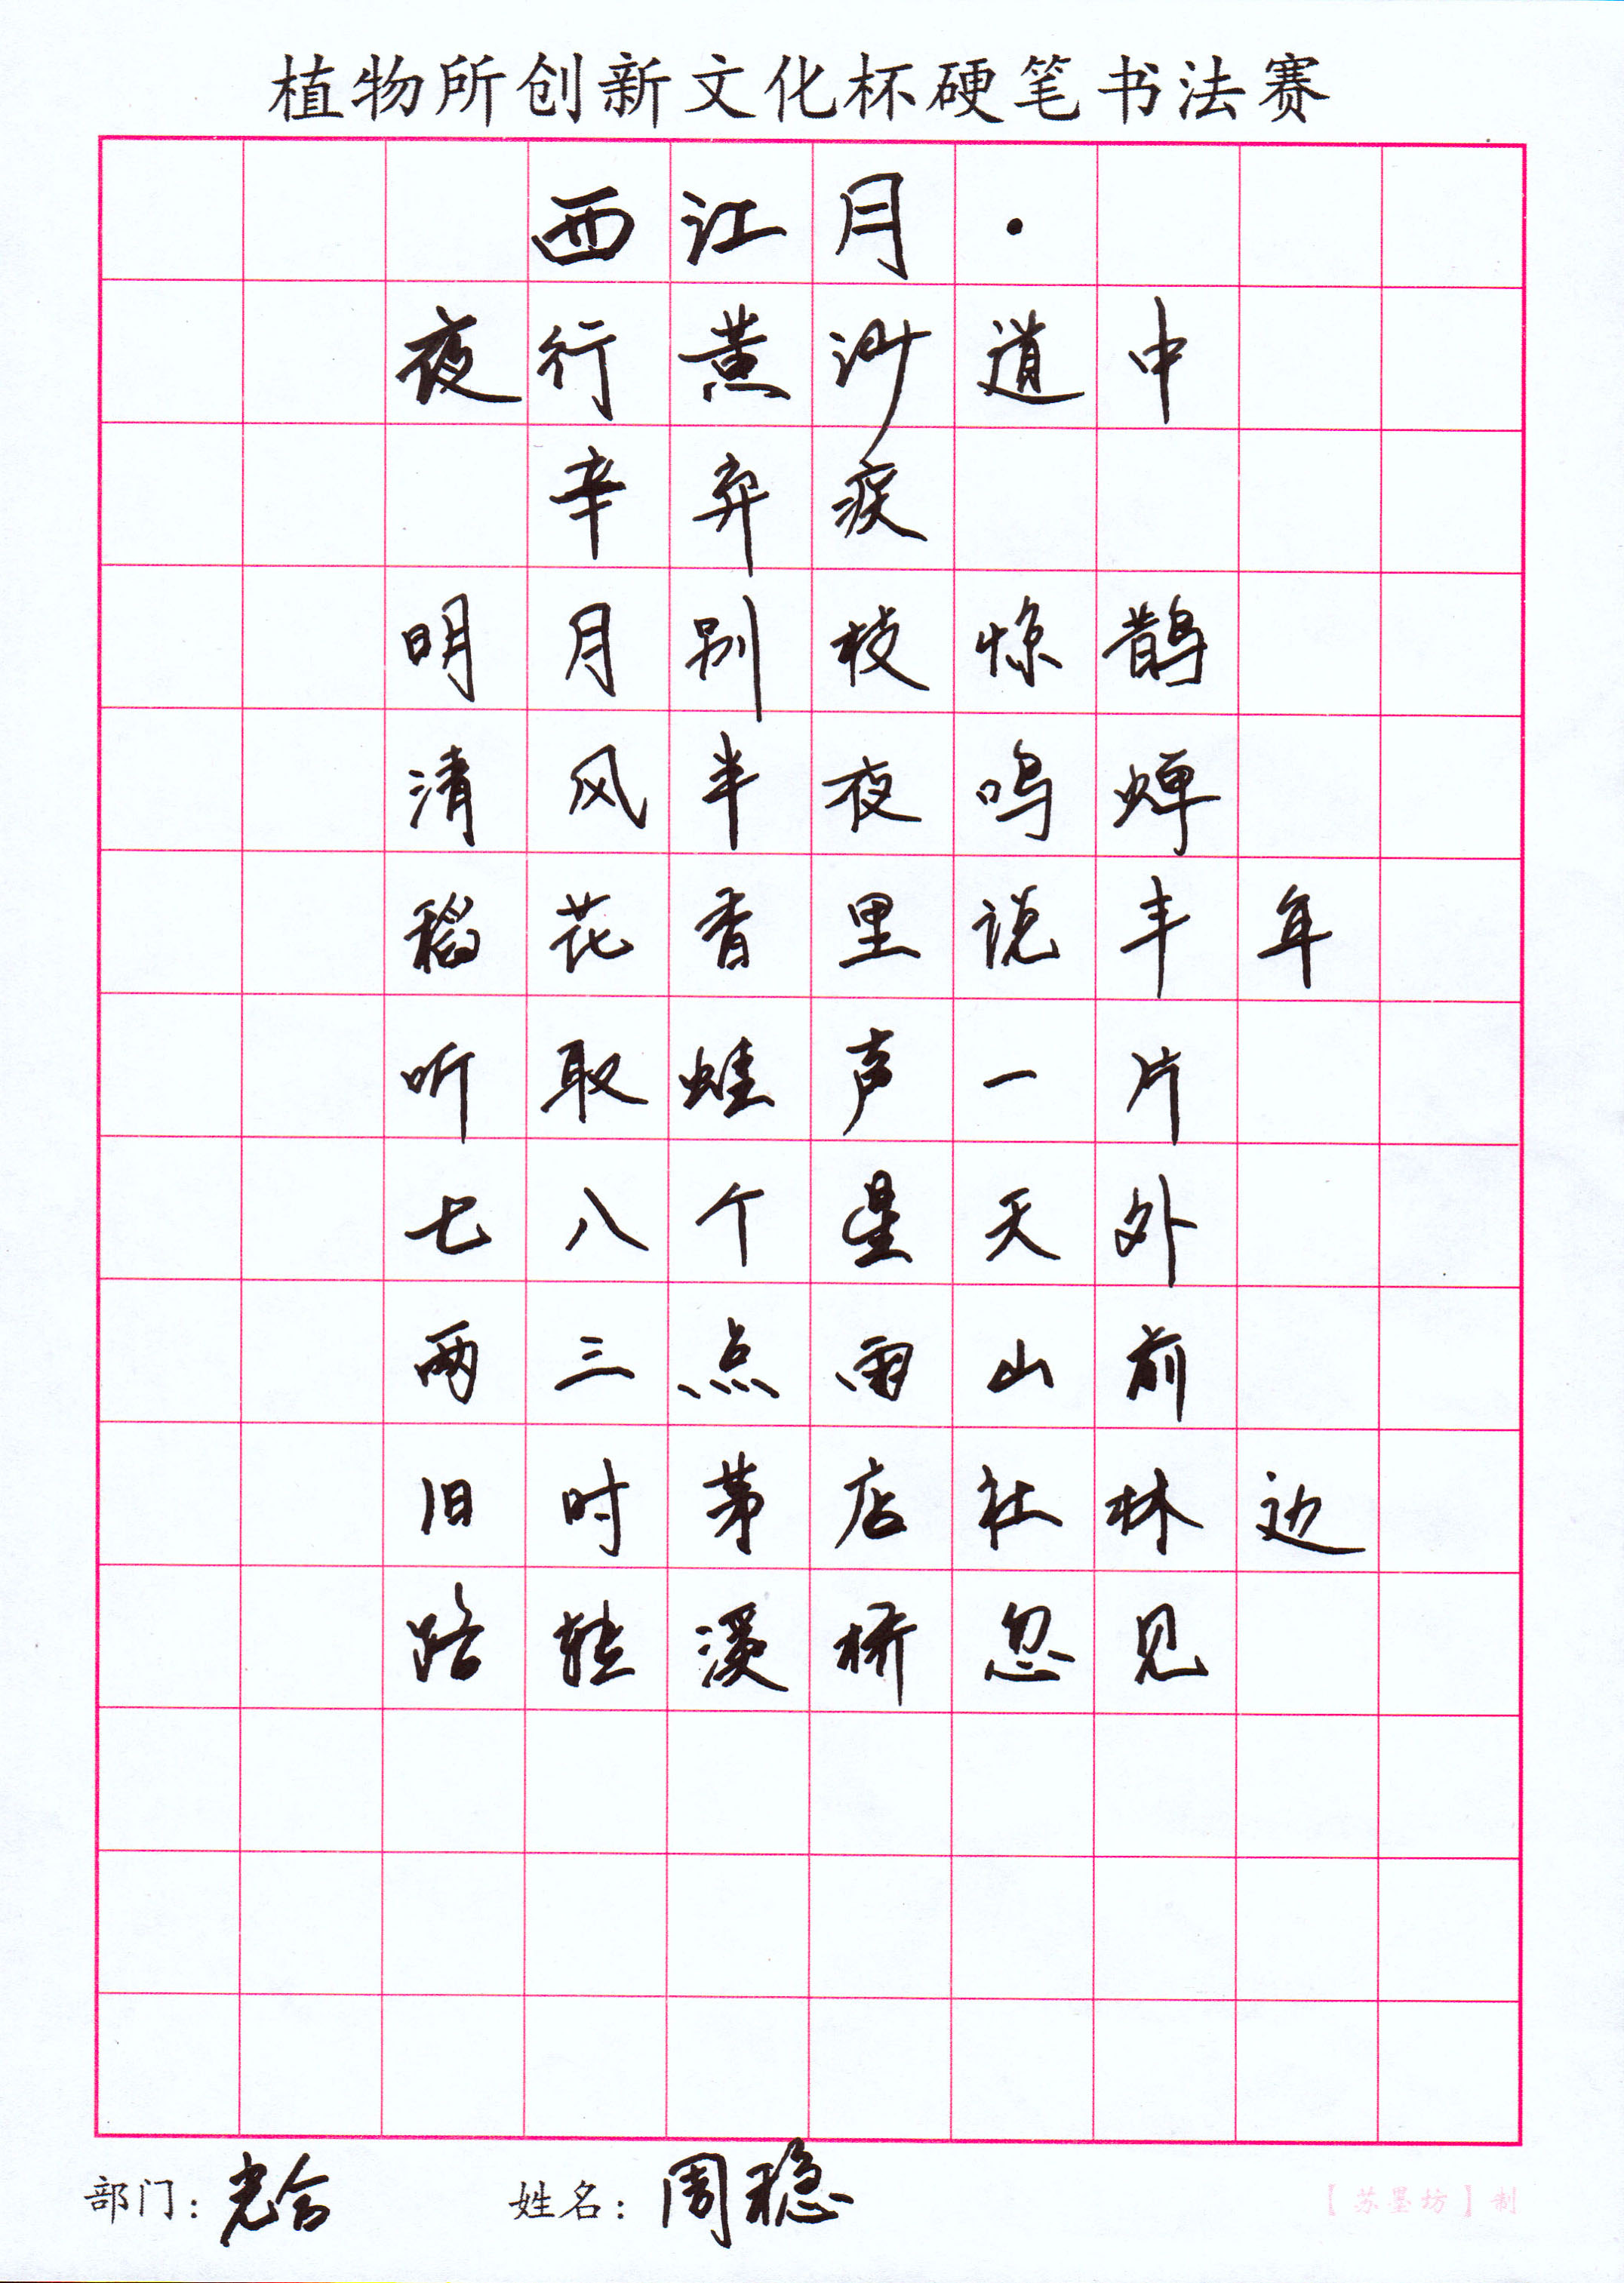 植物所创新文化杯硬笔书法赛
西江月·
夜行黄沙道中
辛弃疾
明月别枝惊鹊
清风半夜鸣蝉
稻花香里说丰年
听取蛙声一片
七八个星天外
两三点雨山前
旧时茅店社林边
路转溪桥忽见
部门：光合 姓名：周稳
【苏墨坊】制